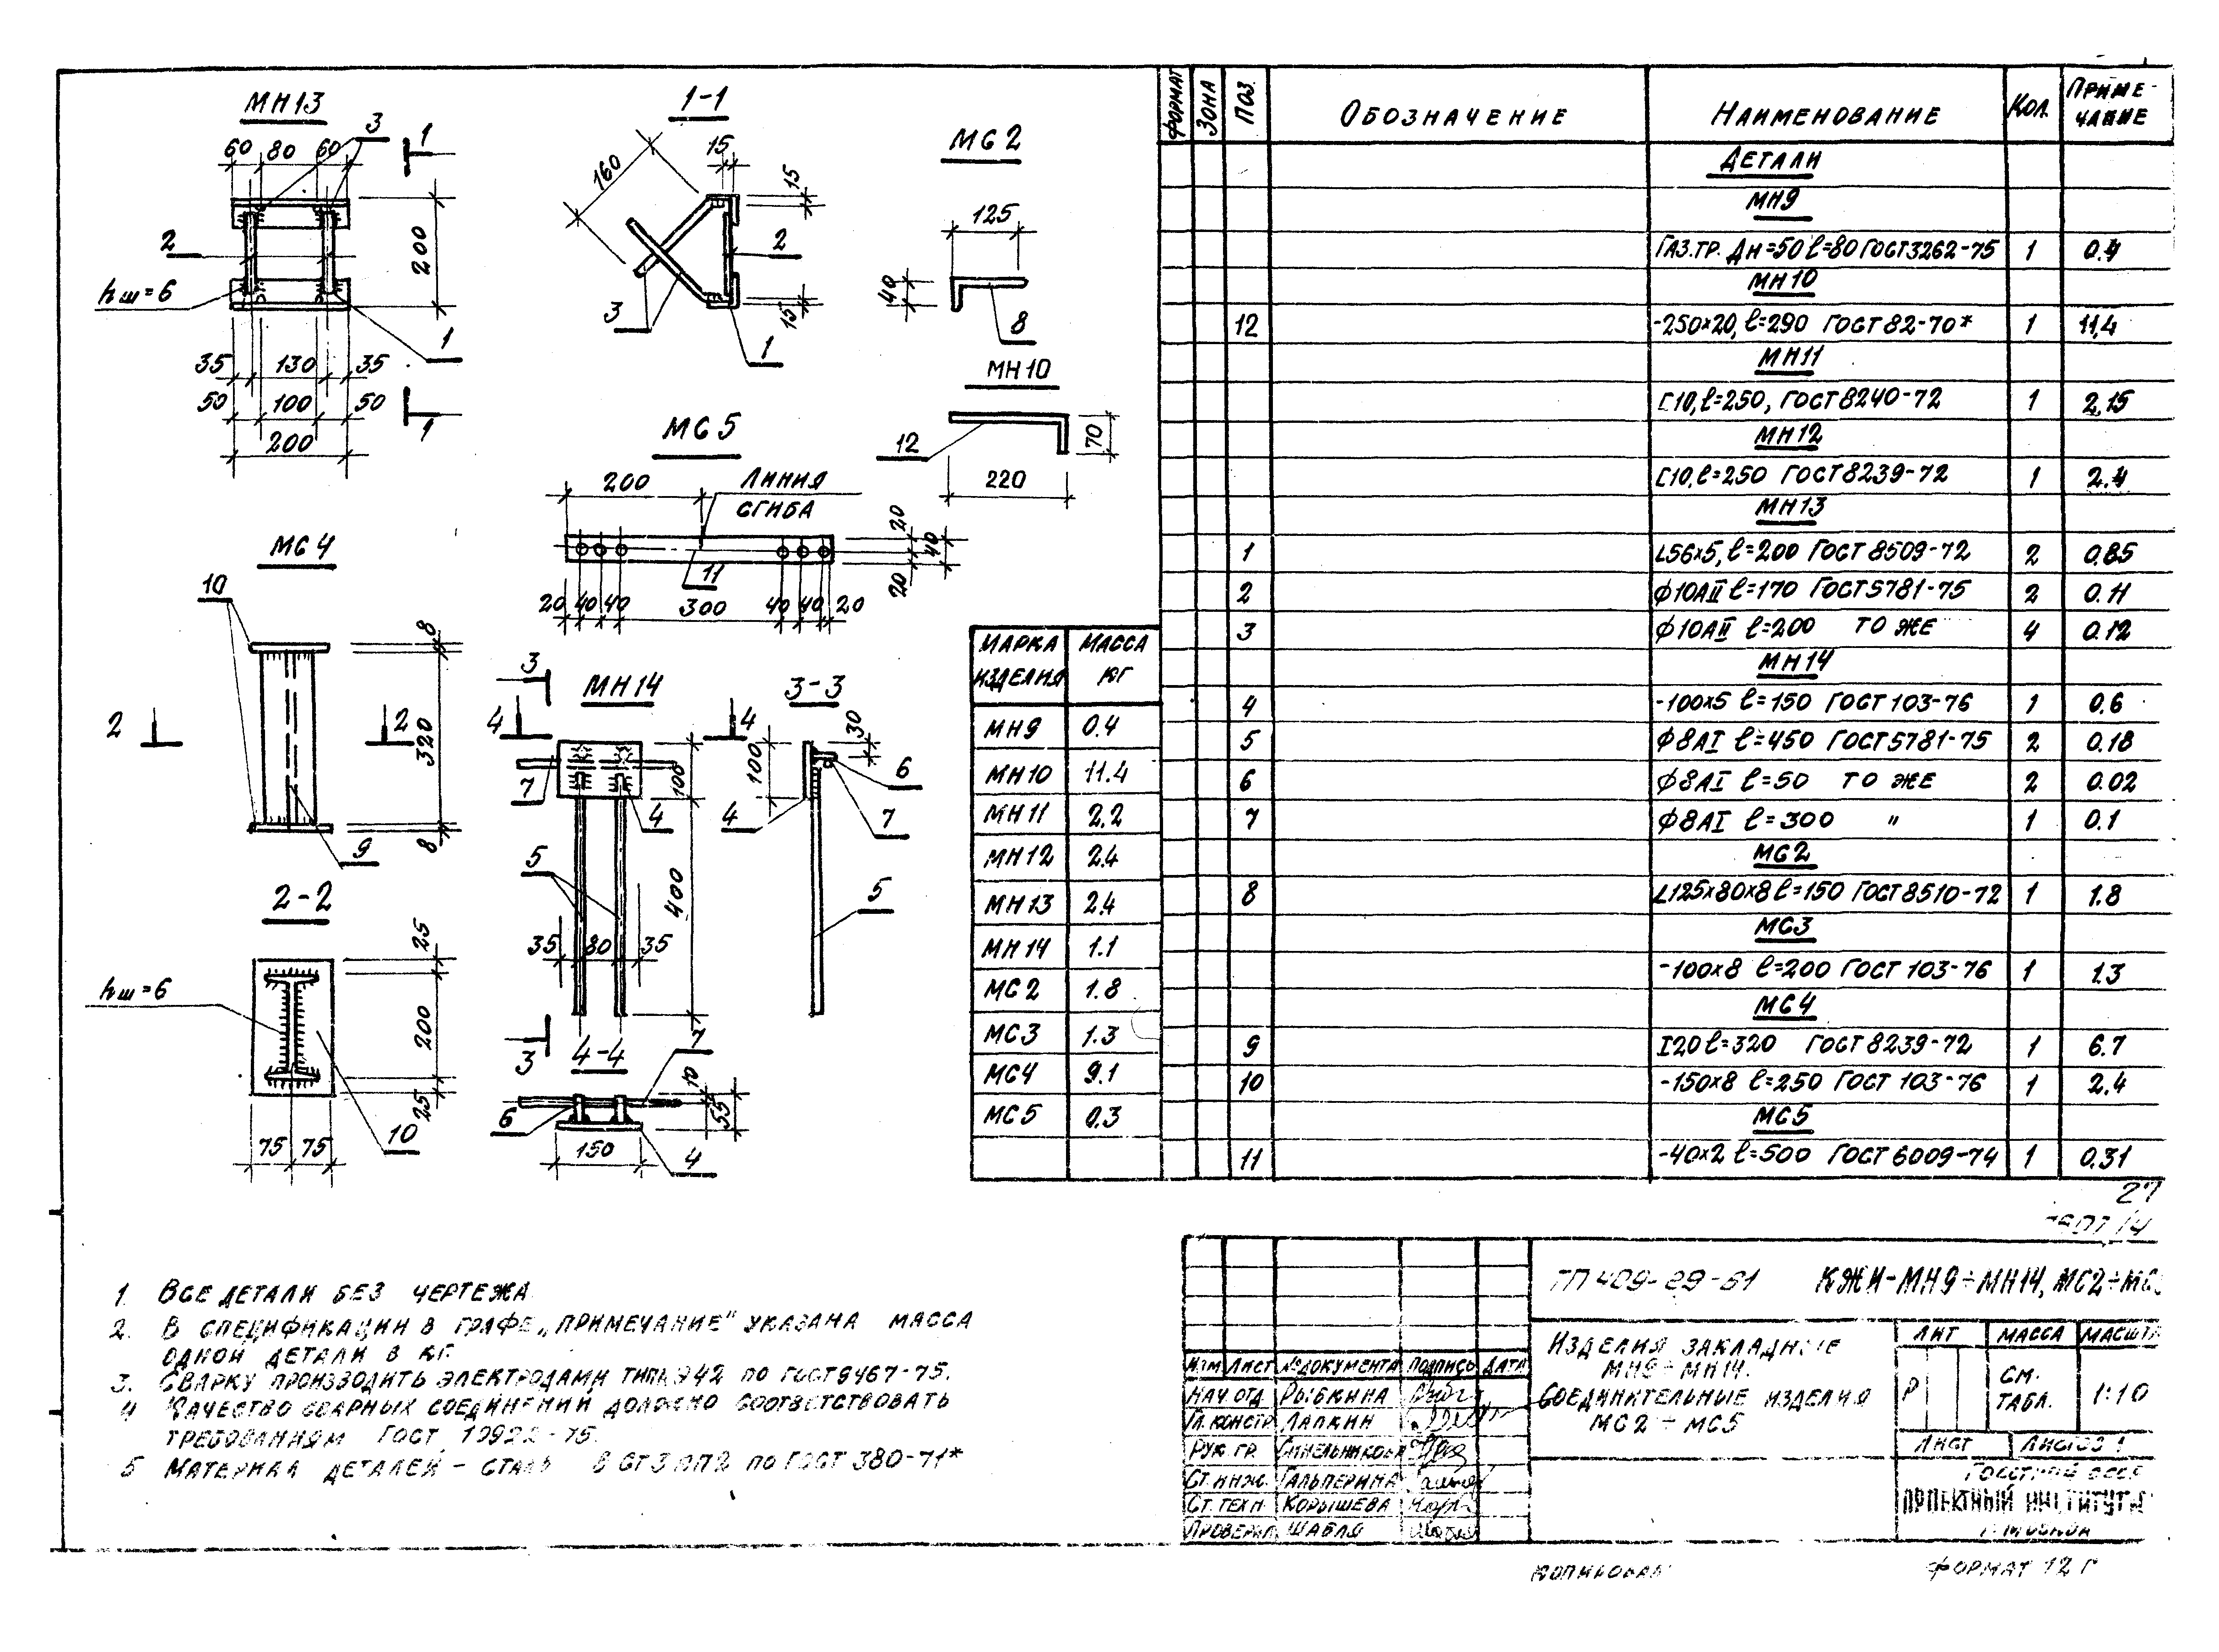 МН13
3
1
60 80 60
200
2
hш=6
1
35 130 35
50 100 50
1
200
1-1
160
15
15
2
3
15
1
МС2
125
40
8
МН10
12
70
220
МС5
200
ЛИНИЯ
СГИБА
20
40
20
11
20 40 40 300 40 40 20
МС4
10
8
2
2
320
8
9
2-2
25
hш=6
200
25
75 75
10
3
МН14
4
4
7
100
4
5
400
35 80 35
3
3-3
30
100
6
4
7
5
4-4
7
10
55
6
150
4
МАРКА ИЗДЕЛИЯ МАССА КГ
МН9 0.4
МН10 11.4
МН11 2.2
МН12 2.4
МН13 2.4
МН14 1.1
МС2 1.8
МС3 1.3
МС4 9.1
МС5 0.3
ФОРМАТ ЗОНА ПОЗ. ОБОЗНАЧЕНИЕ НАИМЕНОВАНИЕ КОЛ. ПРИМЕ-
ЧАНИЕ
ДЕТАЛИ
МН9
ГАЗ.ТР. Дн=50 ℓ=80 ГОСТ3262-75 1 0.4
МН10
12 -250×20, ℓ=290 ГОСТ 82-70* 1 11,4
МН11
[10, ℓ=250, ГОСТ 8240-72 1 2,15
МН12
[10, ℓ=250 ГОСТ 8239-72 1 2.4
МН13
1 ∟56×5, ℓ=200 ГОСТ 8509-72 2 0.85
2 ф10АII ℓ=170 ГОСТ5781-75 2 0.11
3 ф10АII ℓ=200 ТО ЖЕ 4 0.12
МН14
4 -100×5 ℓ=150 ГОСТ 103-76 1 0.6
5 ф8АI ℓ=450 ГОСТ5781-75 2 0.18
6 ф8АI ℓ=50 ТО ЖЕ 2 0.02
7 ф8АI ℓ=300 " 1 0.1
МС2
8 ∟125×80×8 ℓ=150 ГОСТ8510-72 1 1.8
МС3
-100×8 ℓ=200 ГОСТ 103-76 1 1.3
МС4
9 I20 ℓ=320 ГОСТ 8239-72 1 6.7
10 -150×8 ℓ=250 ГОСТ 103-76 1 2.4
МС5
11 -40×2 ℓ=500 ГОСТ 6009-74 1 0.31
27
1. ВСЕ ДЕТАЛИ БЕЗ ЧЕРТЕЖА
2. В СПЕЦИФИКАЦИИ В ГРАФЕ „ПРИМЕЧАНИЕ" УКАЗАНА МАССА
ОДНОЙ ДЕТАЛИ В КГ.
3. СВАРКУ ПРОИЗВОДИТЬ ЭЛЕКТРОДАМИ ТИПА Э42 ПО ГОСТ9467-75.
4 КАЧЕСТВО СВАРНЫХ СОЕДИНЕНИЙ ДОЛЖНО СООТВЕТСТВОВАТЬ
ТРЕБОВАНИЯМ ГОСТ 10922-75.
5 МАТЕРИАЛ ДЕТАЛЕЙ - СТАЛЬ В СТ3 ПП2 ПО ГОСТ 380-71*
КЖИ-МН9÷МН14, МС2÷МС
ИЗДЕЛИЯ ЗАКЛАДНЫЕ
МН9÷МН14.
СОЕДИНИТЕЛЬНЫЕ ИЗДЕЛИЯ
МС2÷МС5
ЛИТ МАССА МАСШТ
Р СМ. ТАБЛ. 1:10
ЛИСТ ЛИСТОВ 1
ГОССТРОЙ СССР
ПРОЕКТНЫЙ ИНСТИТУТ
Г. МОСКВА
ИЗМ ЛИСТ №ДОКУМЕНТА ПОДПИСЬ ДАТА
НАЧ.ОТД РЫБКИНА
ГЛ.КОНСТР. ЛАПКИН
РУК. ГР. СИНЕЛЬНИКОВА
СТ.ИНЖ. ГАЛЬПЕРИНА
СТ.ТЕХН. КОРЫШЕВА
ПРОВЕРИЛ ШАБЛЯ
КОПИРОВАЛ
ФОРМАТ 12 Г